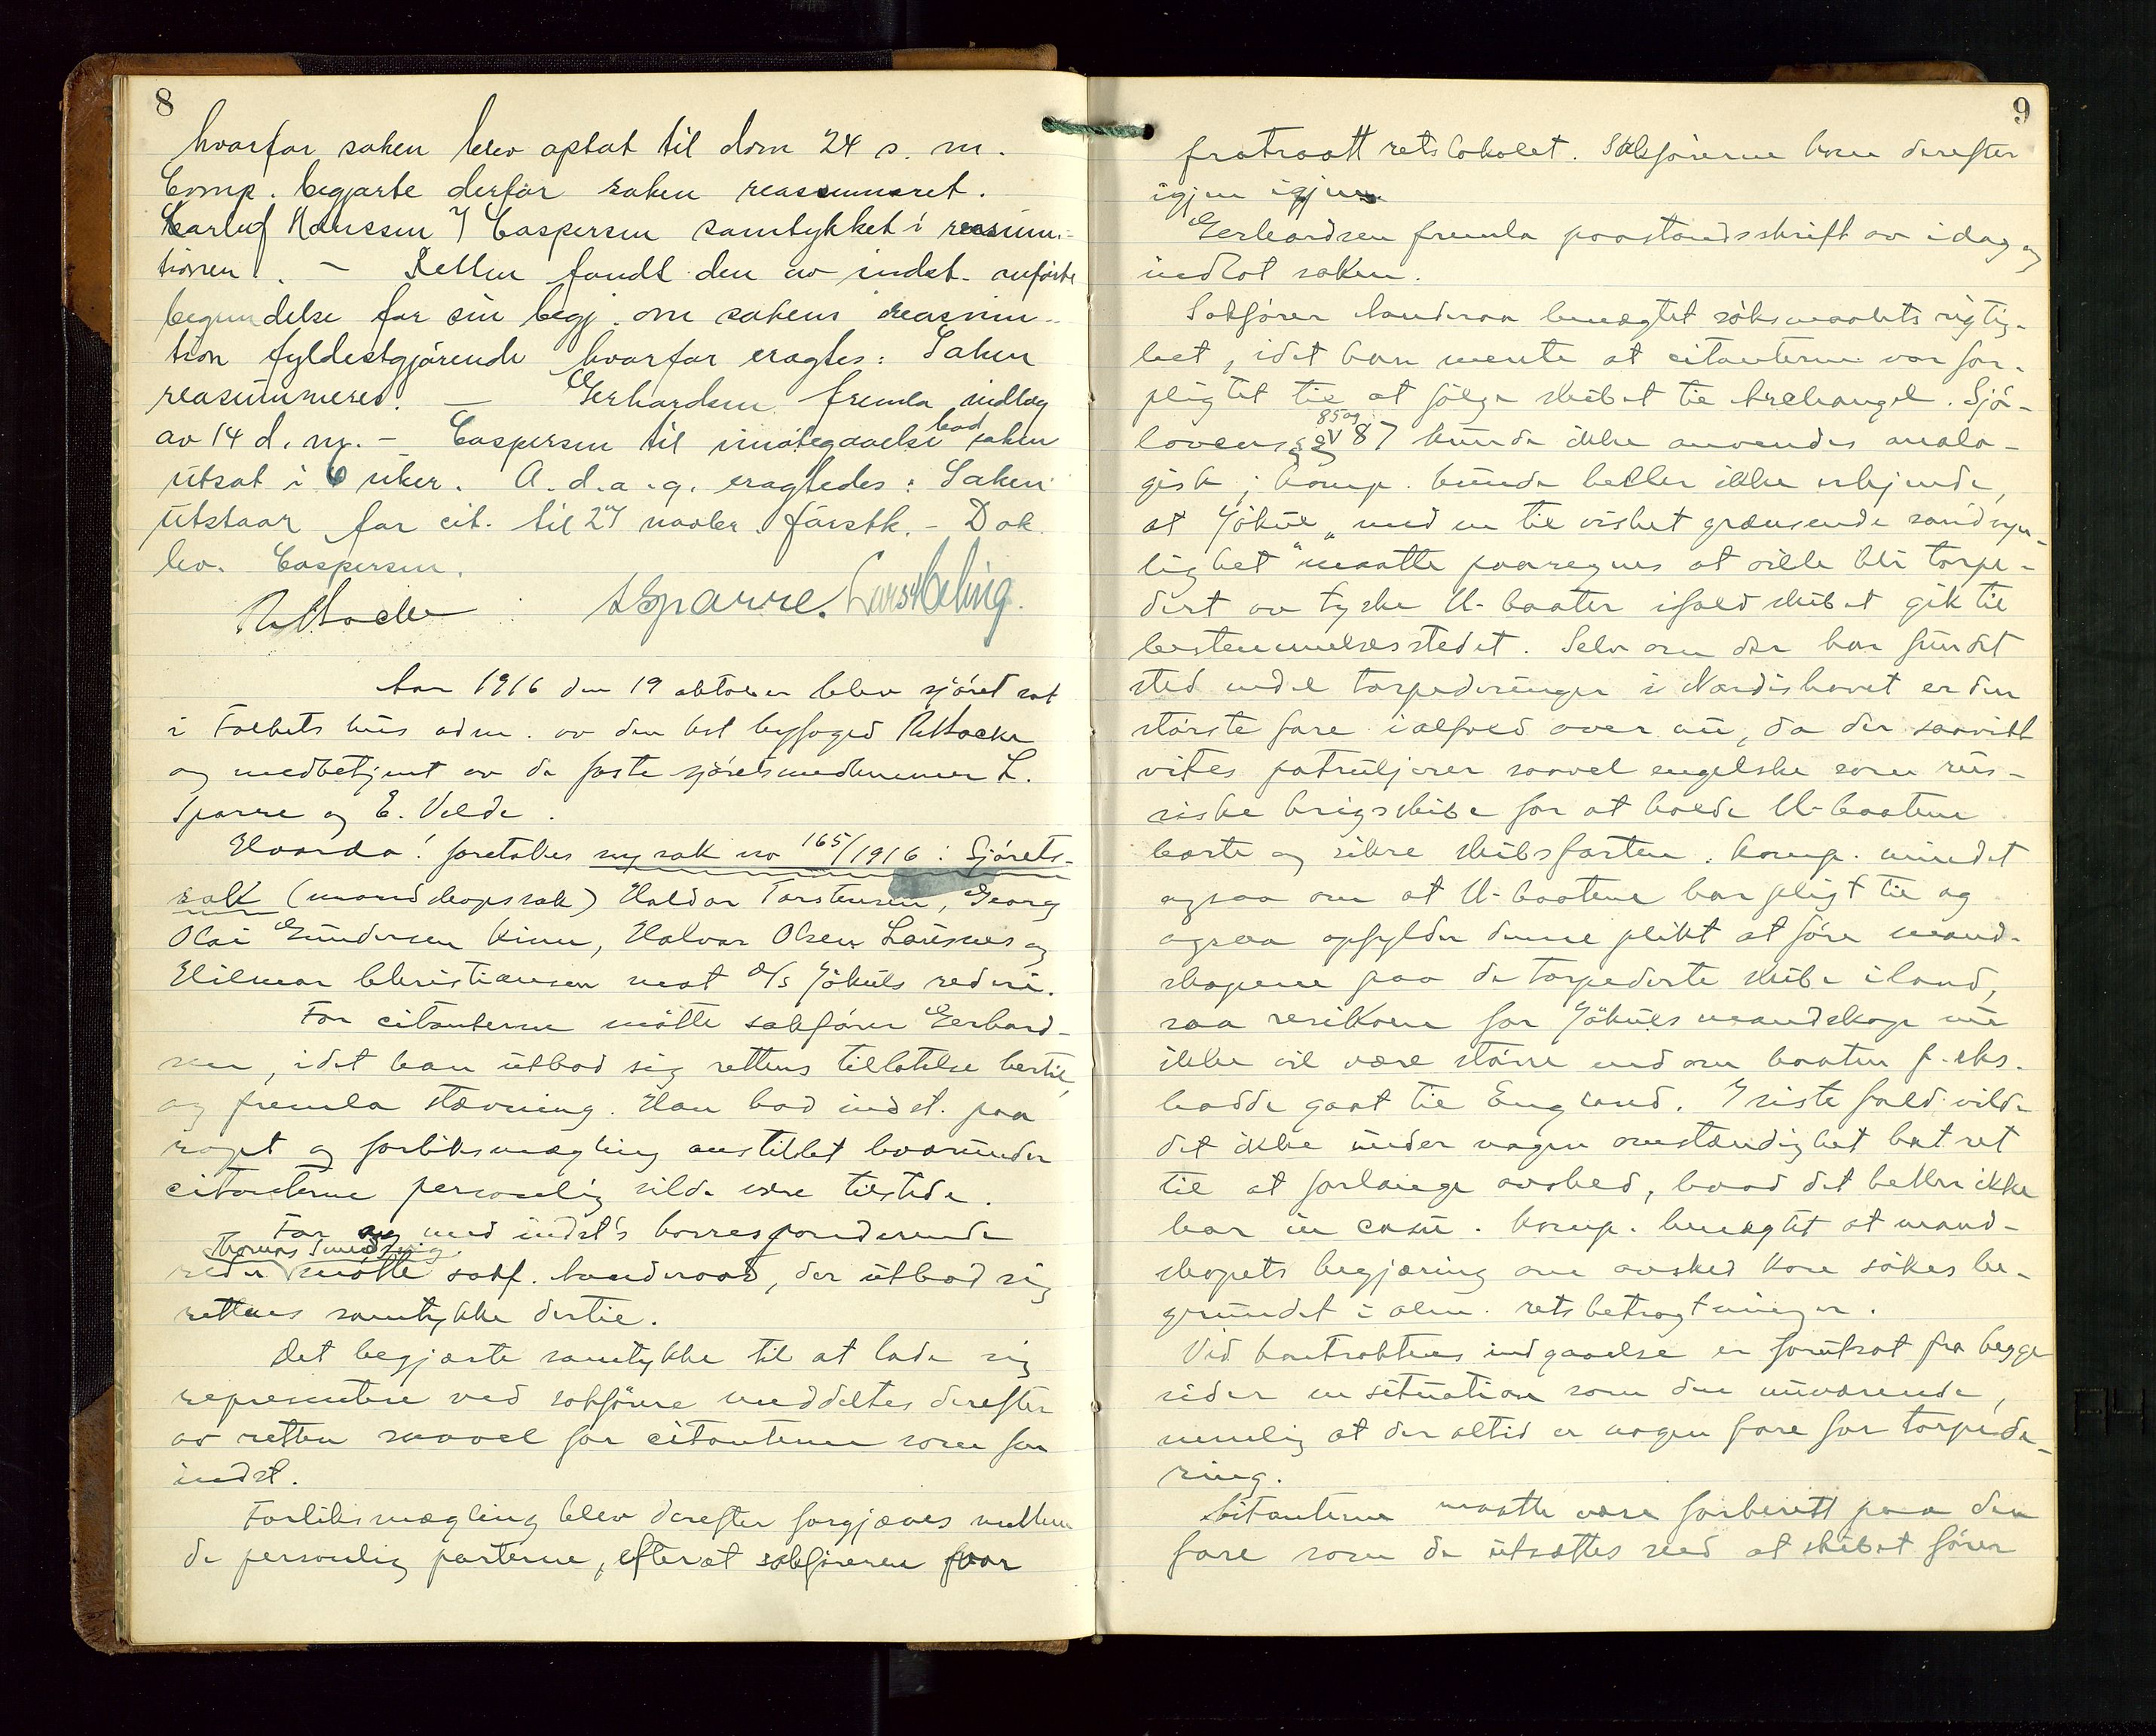 8
hvorfor saken blev optat til dom 24 s. m.
Comp. begjærte derfor saken reassumeret.
Hanssen & Caspersen samtykket i reassum-
tionen. – Retten fandt den av indst. anførte
begrundelse for sin begj. om sakens reassum-
tion fyldestgjørende hvorfor eragtes: Saken
reassummeres. – Gerhardsen fremla indlæg
av 14 d. m. – Caspersen til imøtegaaelse bad saken
utsat i 6 uker. A. d. a. g. eragtedes: Saken
utstaar for cit. til 2 novbr. førstk. – Dok.
lev. Caspersen.
LSparre. Lars Meling.
Aar 1916 den 19 oktober blev sjøret sat
i Folkets hus adm. av den kst byfoged
og medbetjent av de faste sjøretsmedlemmer L.
Sparre og E. Velde.
Hvorda! foretokes ny sak no 165/1916: Sjørets-
sak (mandskapssak) Haldor Torstensen, Georg
Olai Gundersen Kinn, Halvor Olsen Lausnes og
Hilmar Christiansen mot A/S Jøkuls rederi.
For citanterne møtte sakfører Gerhard-
sen, idet han utbad sig rettens tillatelse hertil,
og fremla stævning. Han bad indst. paa
ropt og forliksmægling anstillet hvorunder
citanterne personlig vilde være tilstede.
For og med indst's korresponderende
reder Thomas Smedsvig møtte sakf. Landeraas, der utbad sig
rettens samtykke dertil.
Det begjærte samtykke til at lade sig
representere ved sakførere meddeltes derefter
av retten saavel for citanterne som for
indst.
Forliksmægling blev derefter forgjæves mellem
de personlig parterne, efterat sakføreren hvor
9
fratraatt retslokalet. Sakførerne kom derefter
igjen igjen
Gerhardsen fremla paastandsskrift av idag og
indlot saken.
Sakfører Landeraa benægtet søksmaalets rigtig-
het, idet han mente at citanterne var for-
pligtet til at følge skibet til Archangel. Sjø-
lovens §§ 85 og 87 kunde ikke anvendes analo-
gisk; komp. kunde heller ikke erkjende,
at Jøkul "med en til vished grænsende sandsyn-
lighet" maatte paaregnes at ville bli torpe-
dert av tyske U-baater ifald skibet gik til
bestemmelsesstedet. Selv om der har fundet
sted endel torpederinger i Nordishavet er den
største fare ialfald over nu, da der saavidt
vites patruljerer saavel engelske som rus-
siske krigsskibe for at holde U-baatene
borte og sikre skibsfarten. Komp. mindet
ogsaa om at U-baatene har pligt til og
ogsaa opfylder denne plikt at føre mand-
skapene paa de torpederte skibe iland,
saa risikoen for Jøkuls mandskap nu
ikke vil være større end om baaten f. eks.
hadde gaat til England. I siste fald vilde
det ikke under nogen omstændighet hat ret
til at forlange avsked, hvad det heller ikke
har in casu. Komp. benægtet at mand-
skapets begjæring om avsked kan søkes be-
grundet i alm. retsbetragtninger.
Ved kontraktens indgaaelse er forutsat fra begge
sider en situation som den nuværende,
nemlig at der altid er nogen fare for torpede-
ring.
Citanterne maatte være forberett paa den
fare som de utsættes ved at skibet fører